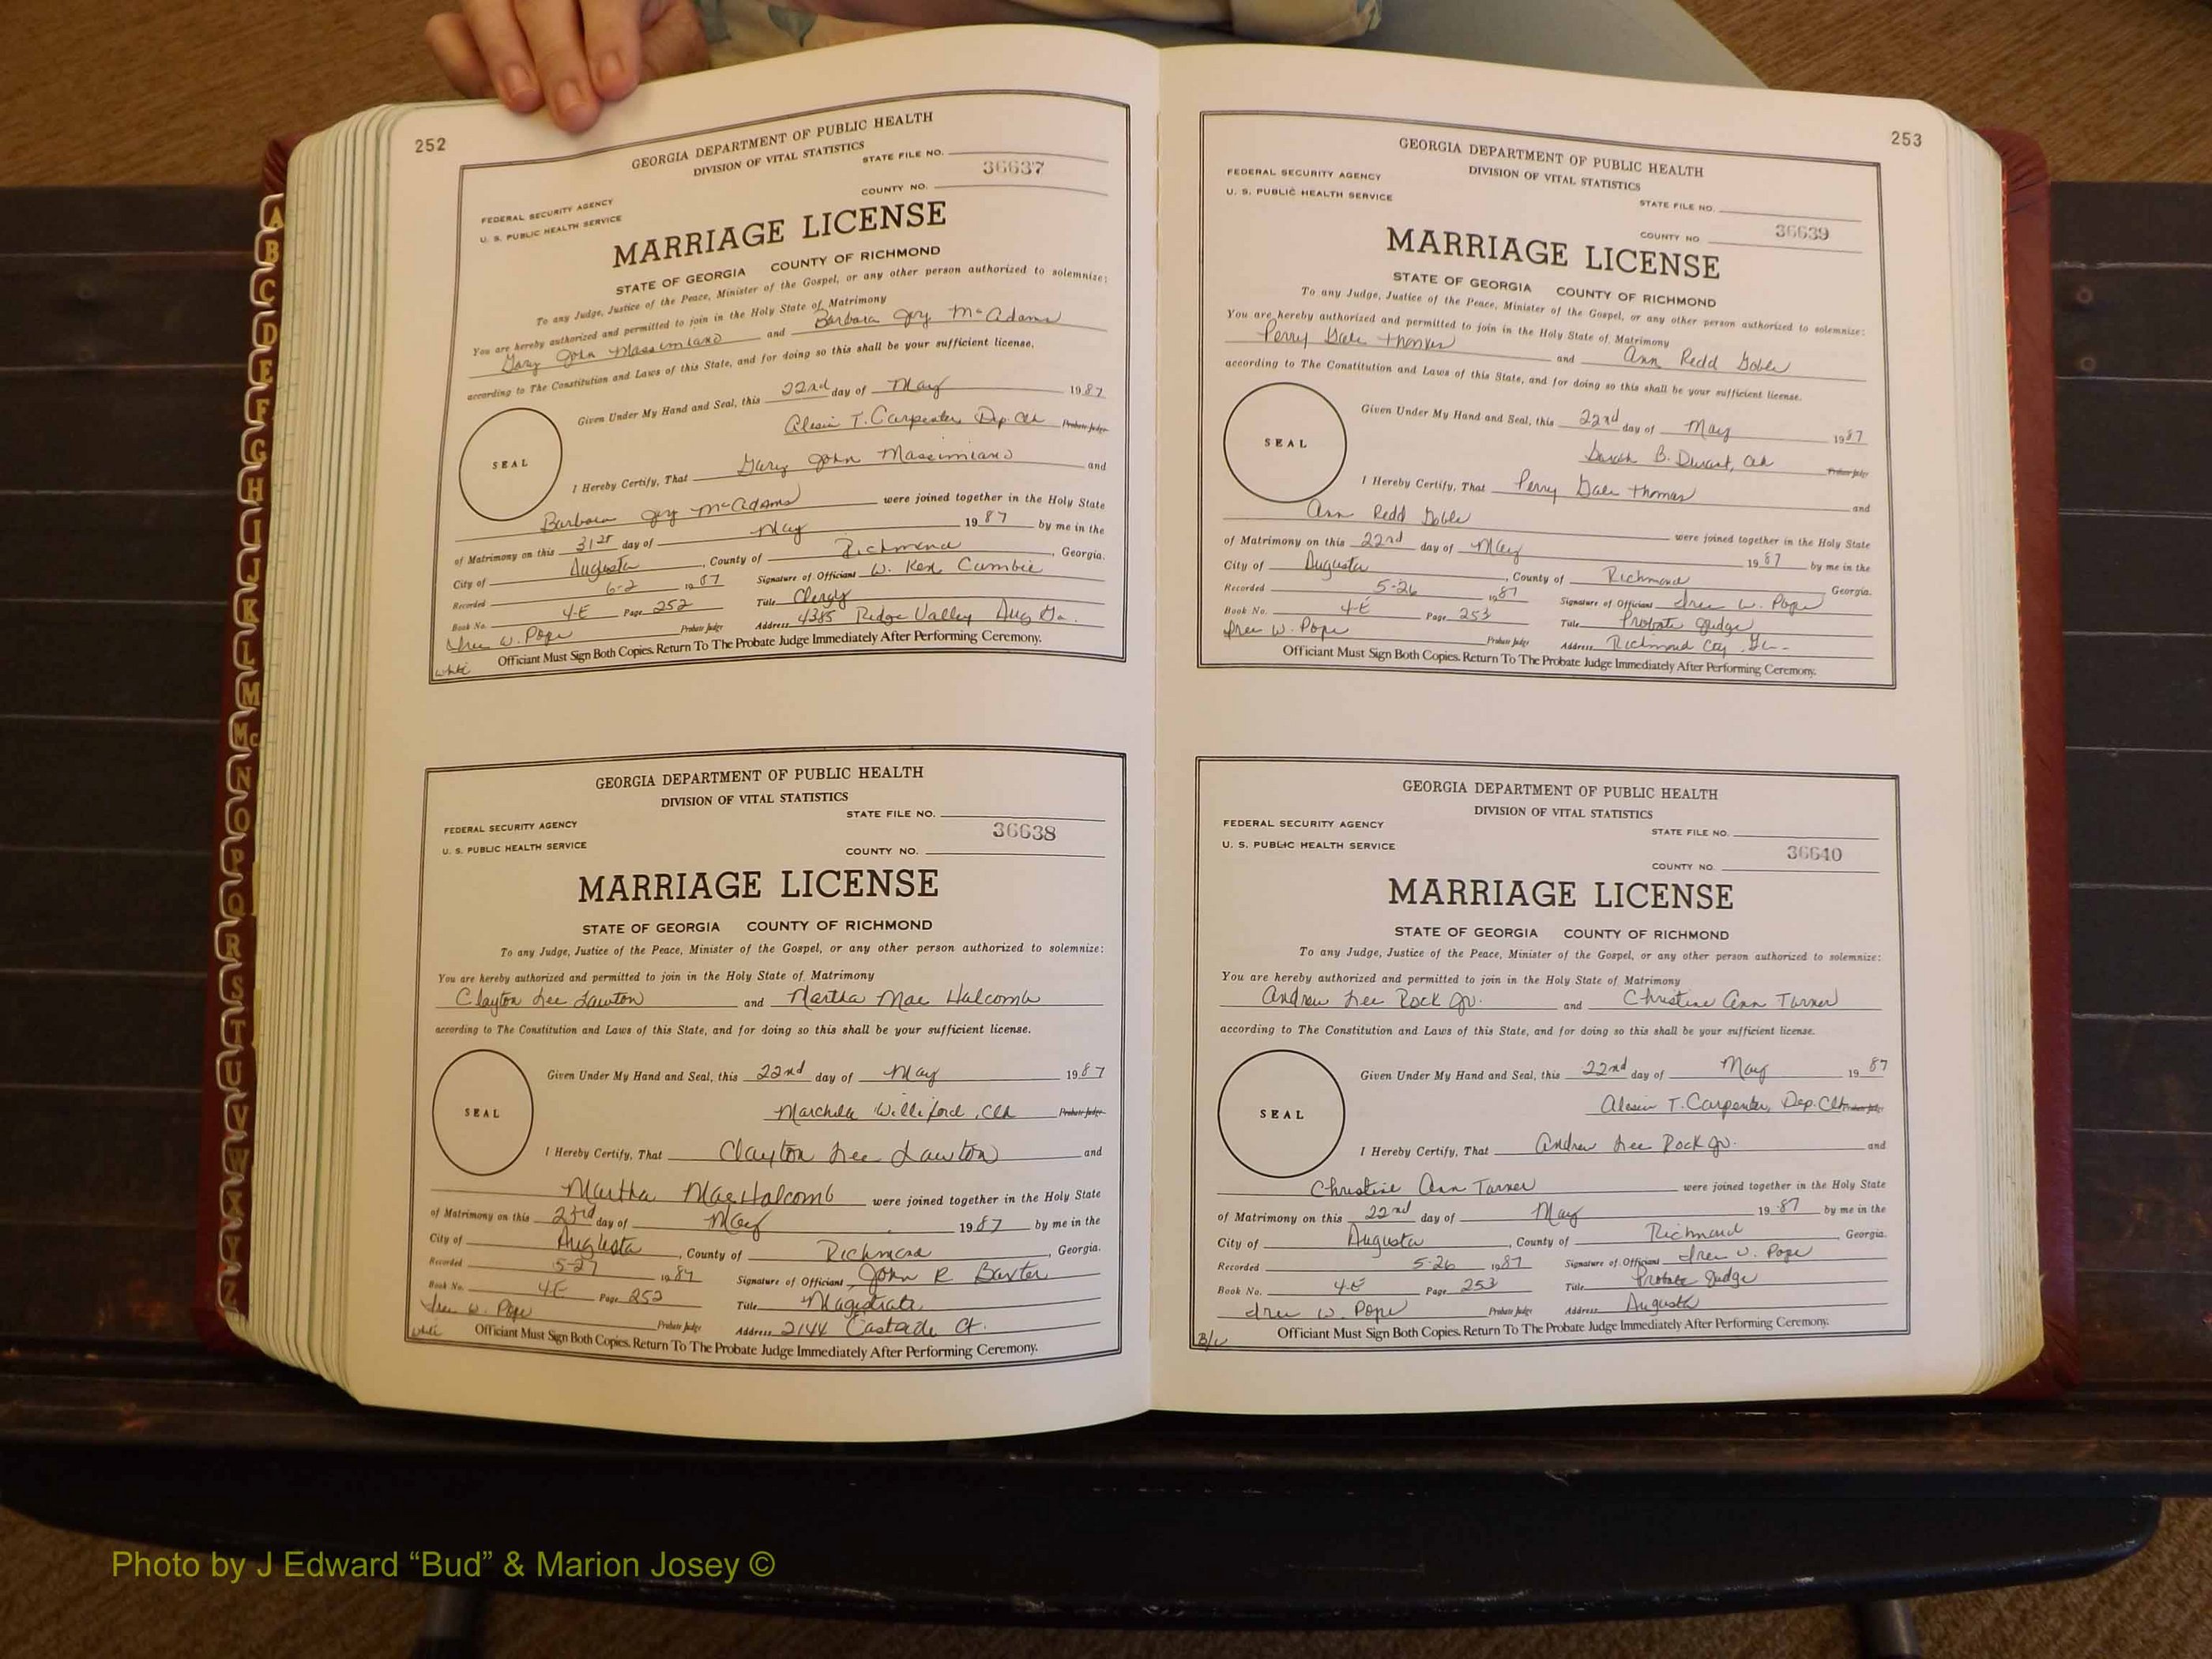 252
GEORGIA DEPARTMENT OF PUBLIC HEALTH
DIVISION OF VITAL STATISTICS
STATE FILE NO.
36637
COUNTY NO.
FEDERAL SECURITY AGENCY
U. S. PUBLIC HEALTH SERVICE
MARRIAGE LICENSE
STATE OF GEORGIA COUNTY OF RICHMOND
To any Judge, Justice of the Peace, Minister of the Gospel, or any other person authorized to solemnize:
You are hereby authorized and permitted to join in the Holy State of Matrimony
Gary John Massimiano and Barbara Joy McAdams
according to The Constitution and Laws of this State, and for doing so this shall be your sufficient license.
Given Under My Hand and Seal, this 22nd day of May 1987
T. Carpenter, Dep. Clk Probate Judge
SEAL
I Hereby Certify, That Gary John Massimiano and
Barbara Joy McAdams were joined together in the Holy State
of Matrimony on this 31st day of May 1987 by me in the
City of Augusta, County of Richmond, Georgia.
Recorded 6-2 1987 Signature of Officiant W. Ken Cumbie
Book No. 4-E Page 252 Title Clergy
W. Pope Probate Judge Address 4385 Ridge Valley Aug Ga.
white Officiant Must Sign Both Copies. Return To The Probate Judge Immediately After Performing Ceremony.
GEORGIA DEPARTMENT OF PUBLIC HEALTH
DIVISION OF VITAL STATISTICS
STATE FILE NO.
FEDERAL SECURITY AGENCY
36638
U. S. PUBLIC HEALTH SERVICE
COUNTY NO.
MARRIAGE LICENSE
STATE OF GEORGIA COUNTY OF RICHMOND
To any Judge, Justice of the Peace, Minister of the Gospel, or any other person authorized to solemnize:
You are hereby authorized and permitted to join in the Holy State of Matrimony
Clayton Lee Lawton and Martha Mae Halcomb
according to The Constitution and Laws of this State, and for doing so this shall be your sufficient license.
Given Under My Hand and Seal, this 22nd day of May 1987
Williford, Clk Probate Judge
SEAL
I Hereby Certify, That Clayton Lee Lawton and
Martha Mae Halcomb were joined together in the Holy State
of Matrimony on this 23rd day of May 1987 by me in the
City of Augusta, County of Richmond, Georgia.
Recorded 5-27 1987 Signature of Officiant John R Baxter
Book No. 4-E Page 252 Title Magistrate
W. Pope Probate Judge Address 2144 Ct.
white Officiant Must Sign Both Copies. Return To The Probate Judge Immediately After Performing Ceremony.
253
GEORGIA DEPARTMENT OF PUBLIC HEALTH
DIVISION OF VITAL STATISTICS
FEDERAL SECURITY AGENCY
U. S. PUBLIC HEALTH SERVICE
STATE FILE NO.
36639
COUNTY NO
MARRIAGE LICENSE
STATE OF GEORGIA COUNTY OF RICHMOND
To any Judge, Justice of the Peace, Minister of the Gospel, or any other person authorized to solemnize:
You are hereby authorized and permitted to join in the Holy State of Matrimony
Perry Gale Thomas and Ann Redd Goble
according to The Constitution and Laws of this State, and for doing so this shall be your sufficient license.
Given Under My Hand and Seal, this 22nd day of May 1987
B. Clk Probate Judge
SEAL
I Hereby Certify, That Perry Gale Thomas and
Ann Redd Goble were joined together in the Holy State
of Matrimony on this 22nd day of May 1987 by me in the
City of Augusta, County of Richmond Georgia.
Recorded 5-26 1987 Signature of Officiant W. Pope
Book No. 4-E Page 253 Title Probate Judge
W. Pope Probate Judge Address Richmond Cty, Ga
Officiant Must Sign Both Copies. Return To The Probate Judge Immediately After Performing Ceremony.
GEORGIA DEPARTMENT OF PUBLIC HEALTH
DIVISION OF VITAL STATISTICS
FEDERAL SECURITY AGENCY
STATE FILE NO.
U. S. PUBLIC HEALTH SERVICE
36640
COUNTY NO
MARRIAGE LICENSE
STATE OF GEORGIA COUNTY OF RICHMOND
To any Judge, Justice of the Peace, Minister of the Gospel, or any other person authorized to solemnize:
You are hereby authorized and permitted to join in the Holy State of Matrimony
Andrew Lee Rock Jr. and Christine Ann Turner
according to The Constitution and Laws of this State, and for doing so this shall be your sufficient license.
Given Under My Hand and Seal, this 22nd day of May 1987
T. Carpenter, Dep. Clk Probate Judge
SEAL
I Hereby Certify, That Andrew Lee Rock Jr. and
Christine Ann Turner were joined together in the Holy State
of Matrimony on this 22nd day of May 1987 by me in the
City of Augusta, County of Richmond, Georgia.
Recorded 5-26 1987 Signature of Officiant W. Pope
Book No. 4-E Page 253 Title Probate Judge
W. Pope Probate Judge Address Augusta
Officiant Must Sign Both Copies. Return To The Probate Judge Immediately After Performing Ceremony.
A
B
C
D
E
F
G
H
I
J
K
L
M
Mc
N
O
P
Q
R
S
T
U
V
W
X
Y
Z
Photo by J Edward “Bud” & Marion Josey ©